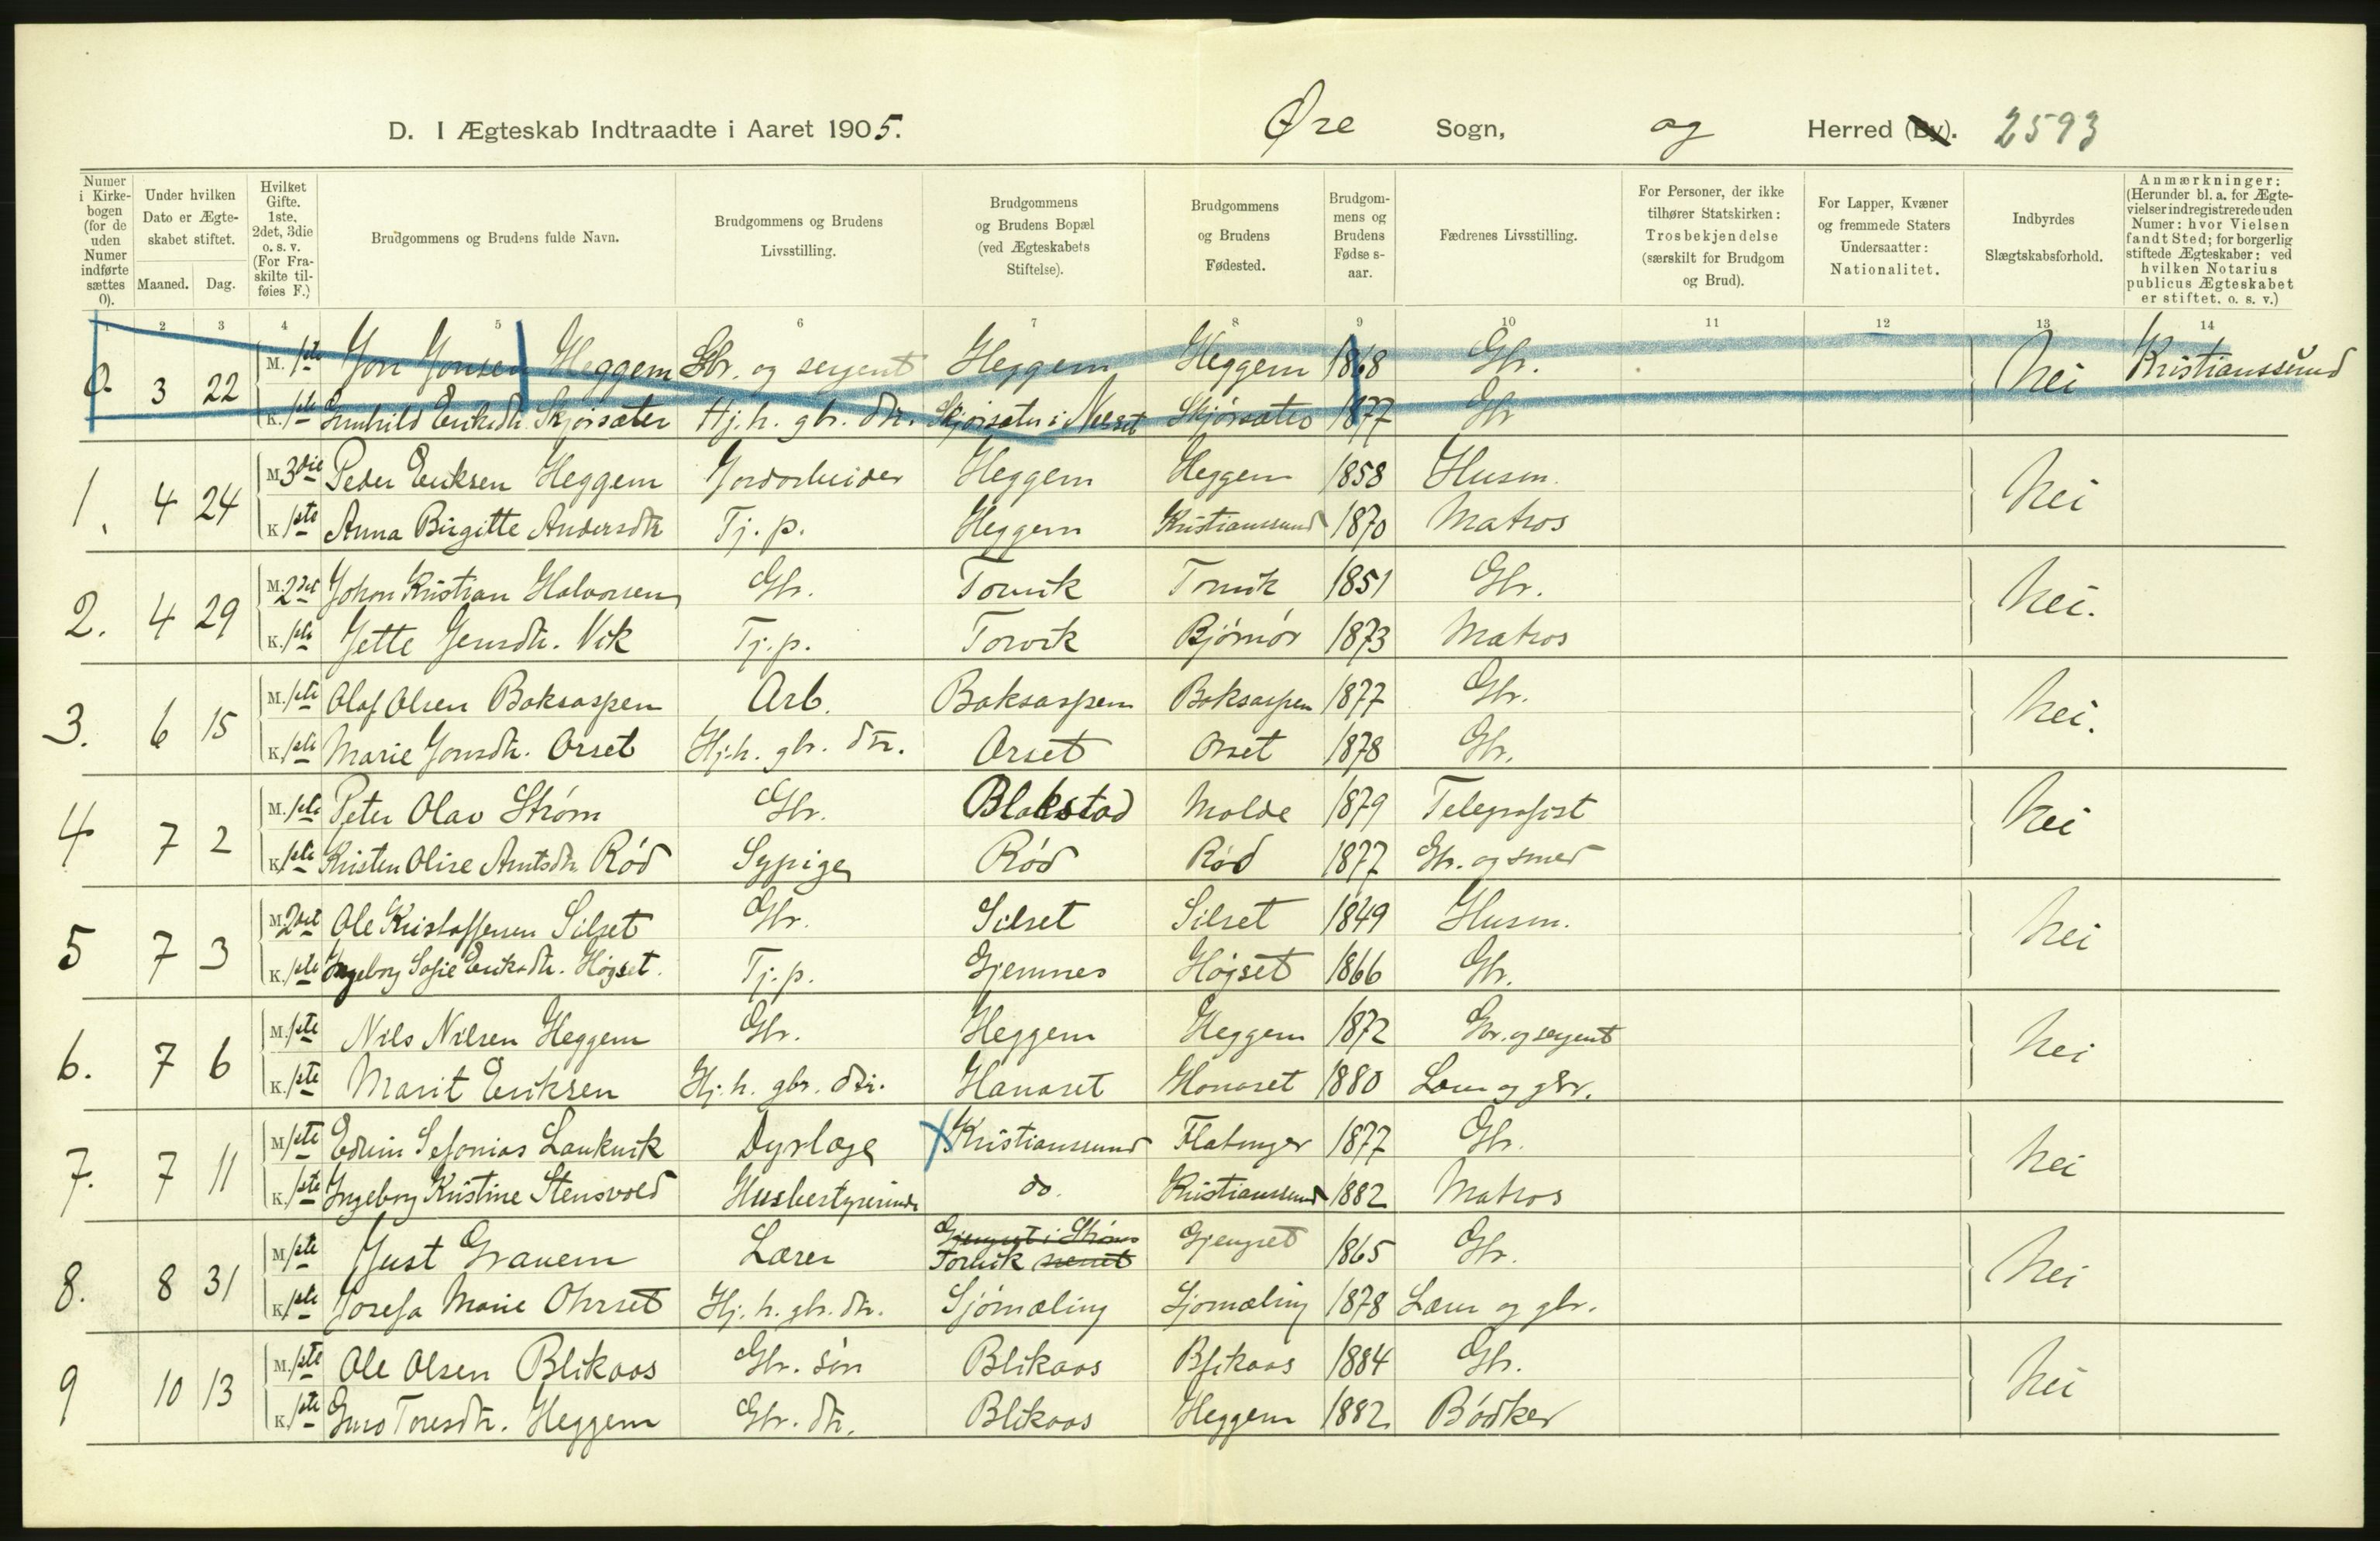 D. I Ægteskab Indtraadte i Aaret 1905. Øre Sogn, og Herred (By). 2593
Numer i Kirkebogen (for de uden Numer indførte sættes 0).
Under hvilken Dato er Ægteskabet stiftet.
Maaned. Dag.
Hvilket Gifte. 1ste, 2det, 3die o. s. v. (For Fraskilte tilføies F.)
Brudgommens og Brudens fulde Navn.
Brudgommens og Brudens Livsstilling.
Brudgommens og Brudens Bopæl (ved Ægteskabets Stiftelse).
Brudgommens og Brudens Fødested.
Brudgommens og Brudens Fødselsaar.
Fædrenes Livsstilling.
For Personer, der ikke tilhører Statskirken: Trosbekjendelse (særskilt for Brudgom og Brud).
For Lapper, Kvæner og fremmede Staters Undersaatter: Nationalitet.
Indbyrdes Slægtskabsforhold.
Anmærkninger: (Herunder bl. a. for Ægtevielser indregistrerede uden Numer: hvor Vielsen fandt Sted; for borgerlig stiftede Ægteskaber: ved hvilken Notarius publicus Ægteskabet er stiftet. o. s. v.)
1 2 3 4 5 6 7 8 9 10 11 12 13 14
0 3 22 M. 1ste Jon Jonsen Heggem Gbr. og sergent Heggem Heggem 1868 Gbr. Nei Kristianssund
K. 1ste Gunhild Eriksdtr. Skjørsæter Hj. h. gbr. dtr. Skjørsæter i Nesset Skjørsæter 1877 Gbr
1. 4 24 M. 3die Peder Eriksen Heggem Jordarbeider Heggem Heggem 1858 Husm. Nei
K. 1ste Anna Birgitte Andersdtr Tj. p. Heggem Kristianssund 1870 Matros
2. 4 29 M. 2det Johan Kristian Halvorsen Gbr. Torvik Torvik 1851 Gbr. Nei.
K. 1ste Jette Jensdtr. Vik Tj. p. Torvik Bjørnør 1873 Matros
3. 6 15 M. 1ste Olaf Olsen Boksaspen Arb. Boksaspen Boksaspen 1877 Gbr. Nei.
K. 1ste Marie Jonsdtr. Orset Hj. h. gbr. dtr. Orset Orset 1878 Gbr.
4 7 2 M. 1ste Peter Olav Strøm Gbr. Blakstad Molde 1879 Telegrafist Nei
K. 1ste Kristen Olise Arntsdtr. Rød Sypige Rød Rød 1877 Gbr. og smed
5 7 3 M. 2det Ole Kristoffersen Silset Gbr. Silset Silset 1849 Husm. Nei
K. 1ste Ingeborg Sofie Eriksdtr. Højset. Tj. p. Gjemnes Højset 1866 Gbr.
6. 7 6 M. 1ste Nils Nilsen Heggem Gbr. Heggem Heggem 1872 Gbr. og sergent Nei
K. 1ste Marit Eriksen Hj. h. gbr. dtr. Hanaset Hanaset 1880 Lærer og gbr.
7. 7 11 M. 1ste Edvin Sefonias Laukvik Dyrlæge Kristianssund Flatanger 1877 Gbr. Nei
K. 1ste Ingeborg Kristine Stensvold Husbestyrerinde do. Kristianssund 1882 Matros
8. 8 31 M. 1ste Just Gravem Lærer Torvik Gjengset 1865 Gbr. Nei
K. 1ste Josefa Marie Ohrset Hj. h. gbr. dtr. Sjømæling Sjømæling 1878 Lærer og gbr.
9 10 13 M. 1ste Ole Olsen Blikaas Gbr. søn Blikaas Blikaas 1884 Gbr. Nei
K. 1ste Guro Toresdtr. Heggem Gbr. dtr. Blikaas Heggem 1882 Bødker